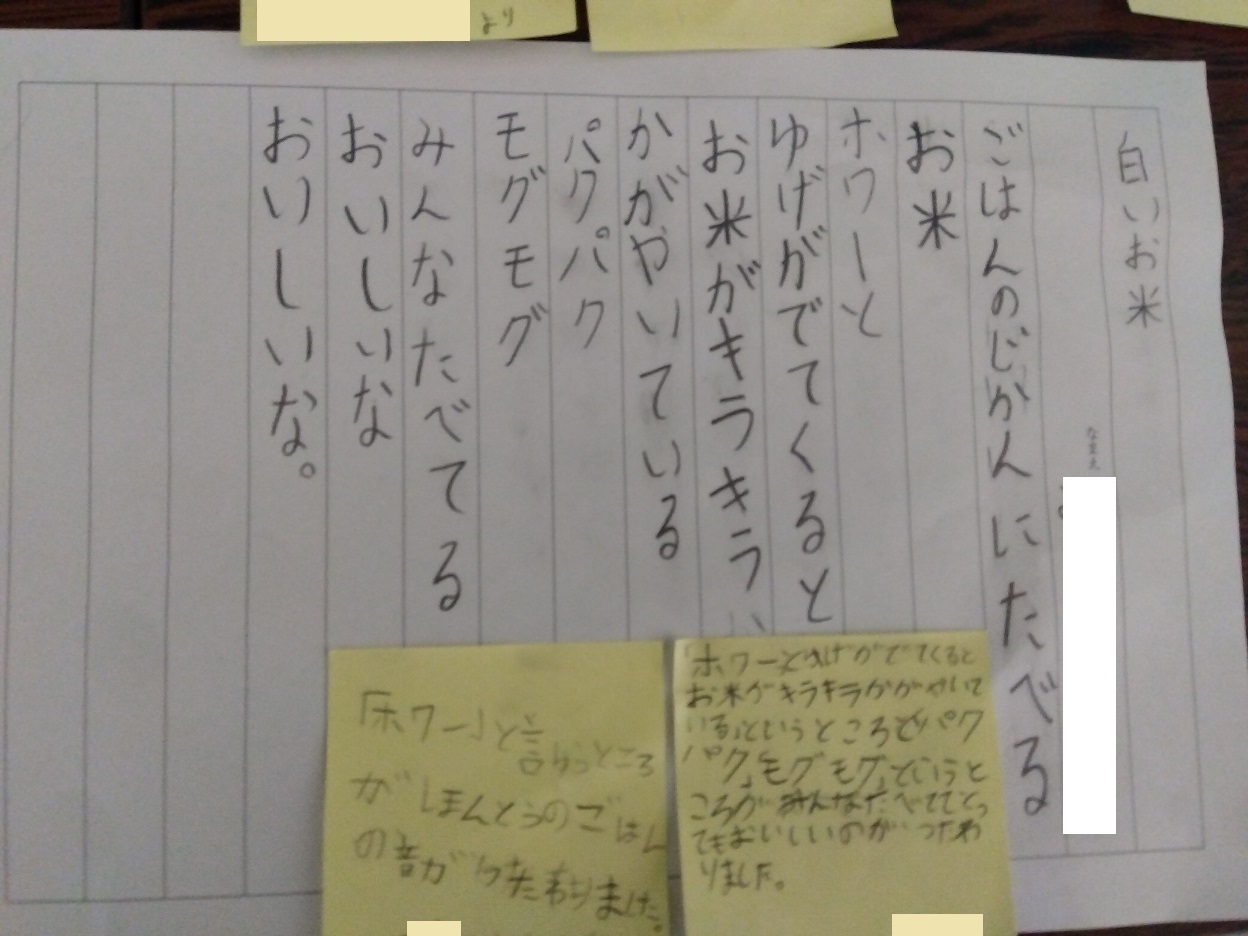 より
白いお米
なまえ
ごはんのじかんにたべる
お米
ホワーと
ゆげがでてくると
お米がキラキラ
かがやいている
パクパク
モグモグ
みんなたべてる
おいしいな
おいしいな。
「ホワーとゆげがでてくると
お米がキラキラかがやいて
いる」というところで「パク
パク」「モグモグ」というと
ころがみんなたべててとっ
てもおいしいのがつたわ
りました。
「ホワー」と言うところ
がほんとうのごはん
の音がつたわりました。